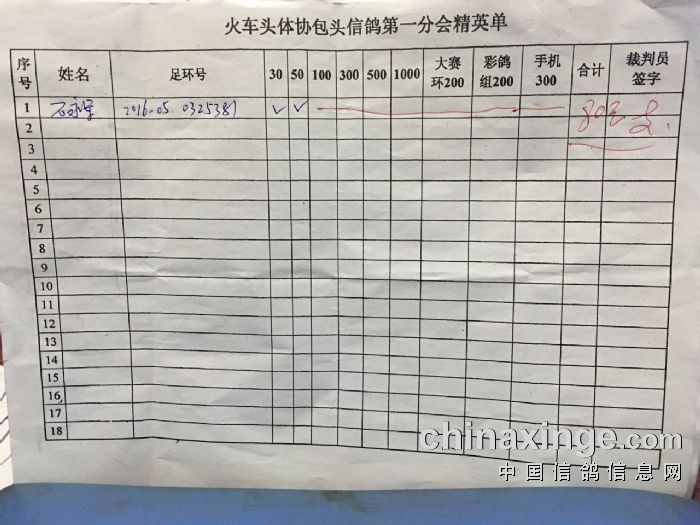 火车头体协包头信鸽第一分会精英单
序号 姓名 足环号 30 50 100 300 500 1000 大赛环200 彩鸽组200 手机300 合计 裁判员签字
1 2016.05.0325381 ✓ ✓ 80元
2
3
4
5
6
7
8
9
10
11
12
13
14
15
16
17
18
chinaxinge.com
中国信鸽信息网